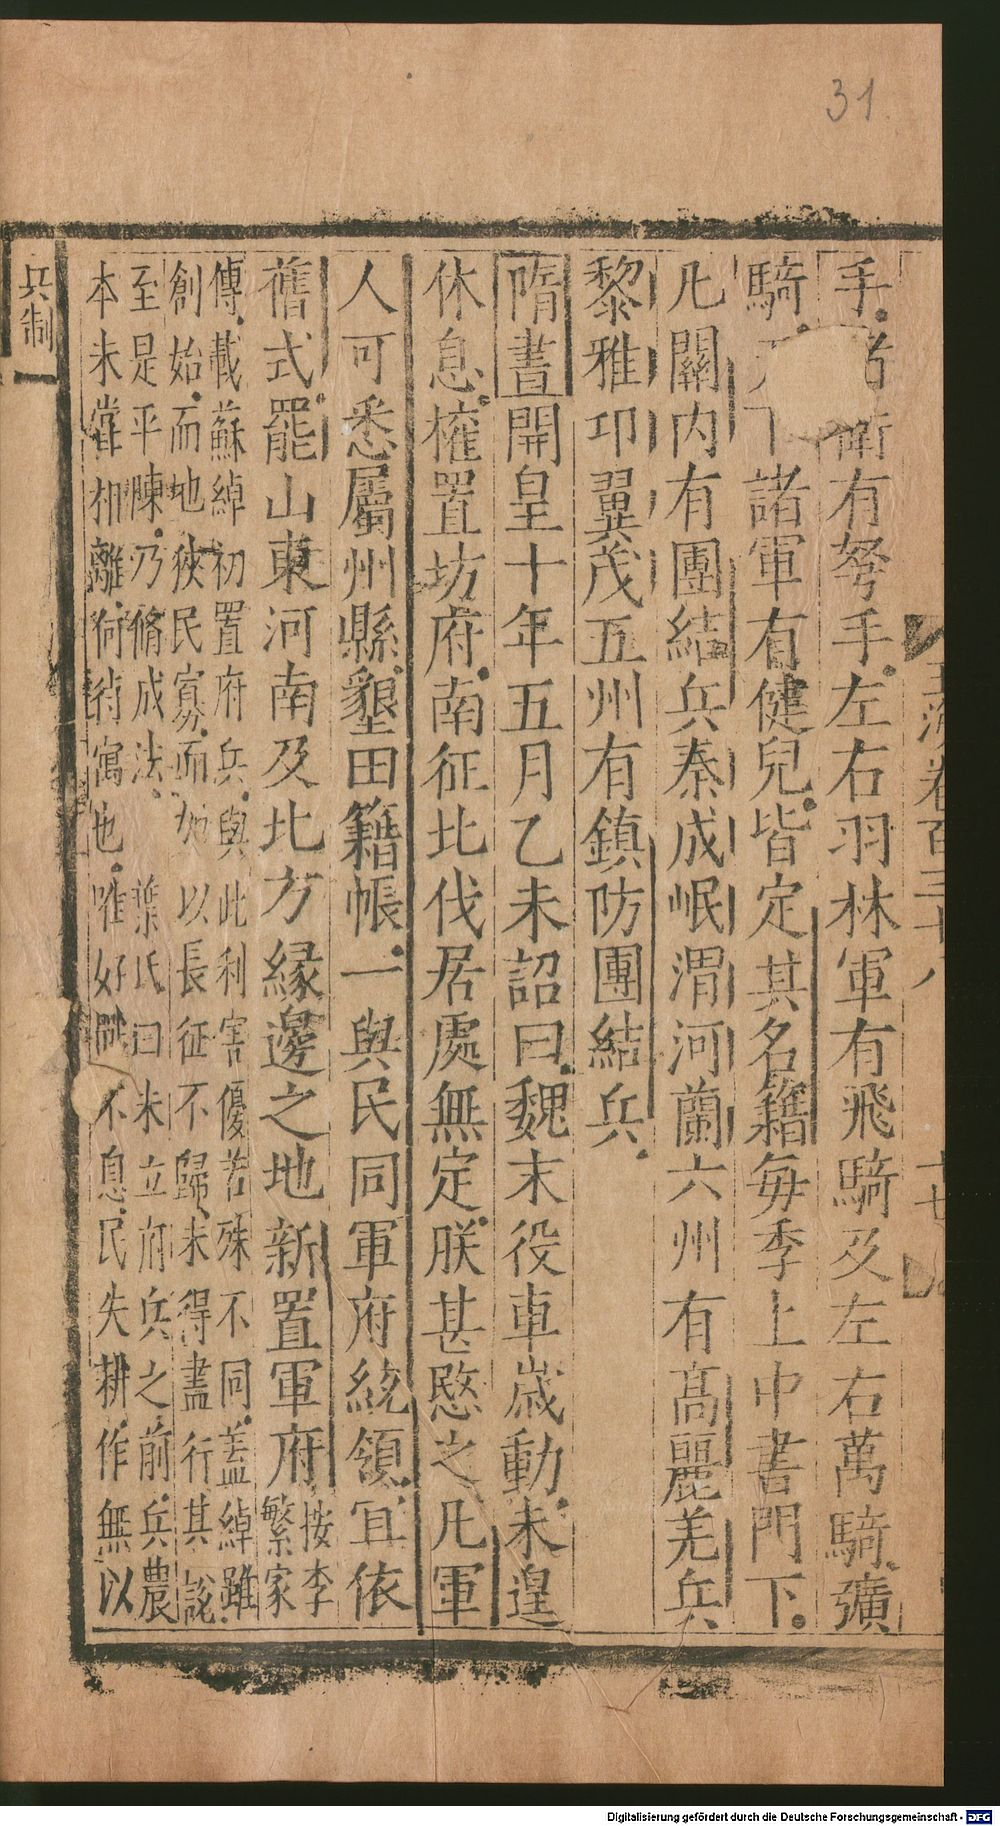 31
手諸衛有弩手左右羽林軍有飛騎及左右萬騎彍
騎下諸軍有健兒皆定其名籍每季上中書門下
凡關内有團結兵秦成岷渭河蘭六州有高麗羌兵
黎雅卭翼茂五州有鎮防團結兵
隋晝開皇十年五月乙未詔曰魏末役車歲動未遑
休息權置坊府南征北伐居處無定朕甚愍之凡軍
人可悉屬州縣墾田籍帳一與民同軍府統領宜依
舊式罷山東河南及北方緣邊之地新置軍府
按李
繁家
傳載蘇綽初置府兵與此利害優若殊不同蓋綽雖
創始而地狹民寡而以長征不歸未得盡行其說
至是平陳乃脩成法葉氏曰未立府兵之前兵農
本未嘗相離何待寓也唯好戰不息民失耕作無以
兵制
玉海卷百三十八
十七
Digitalisierung gefördert durch die Deutsche Forschungsgemeinschaft - DFG